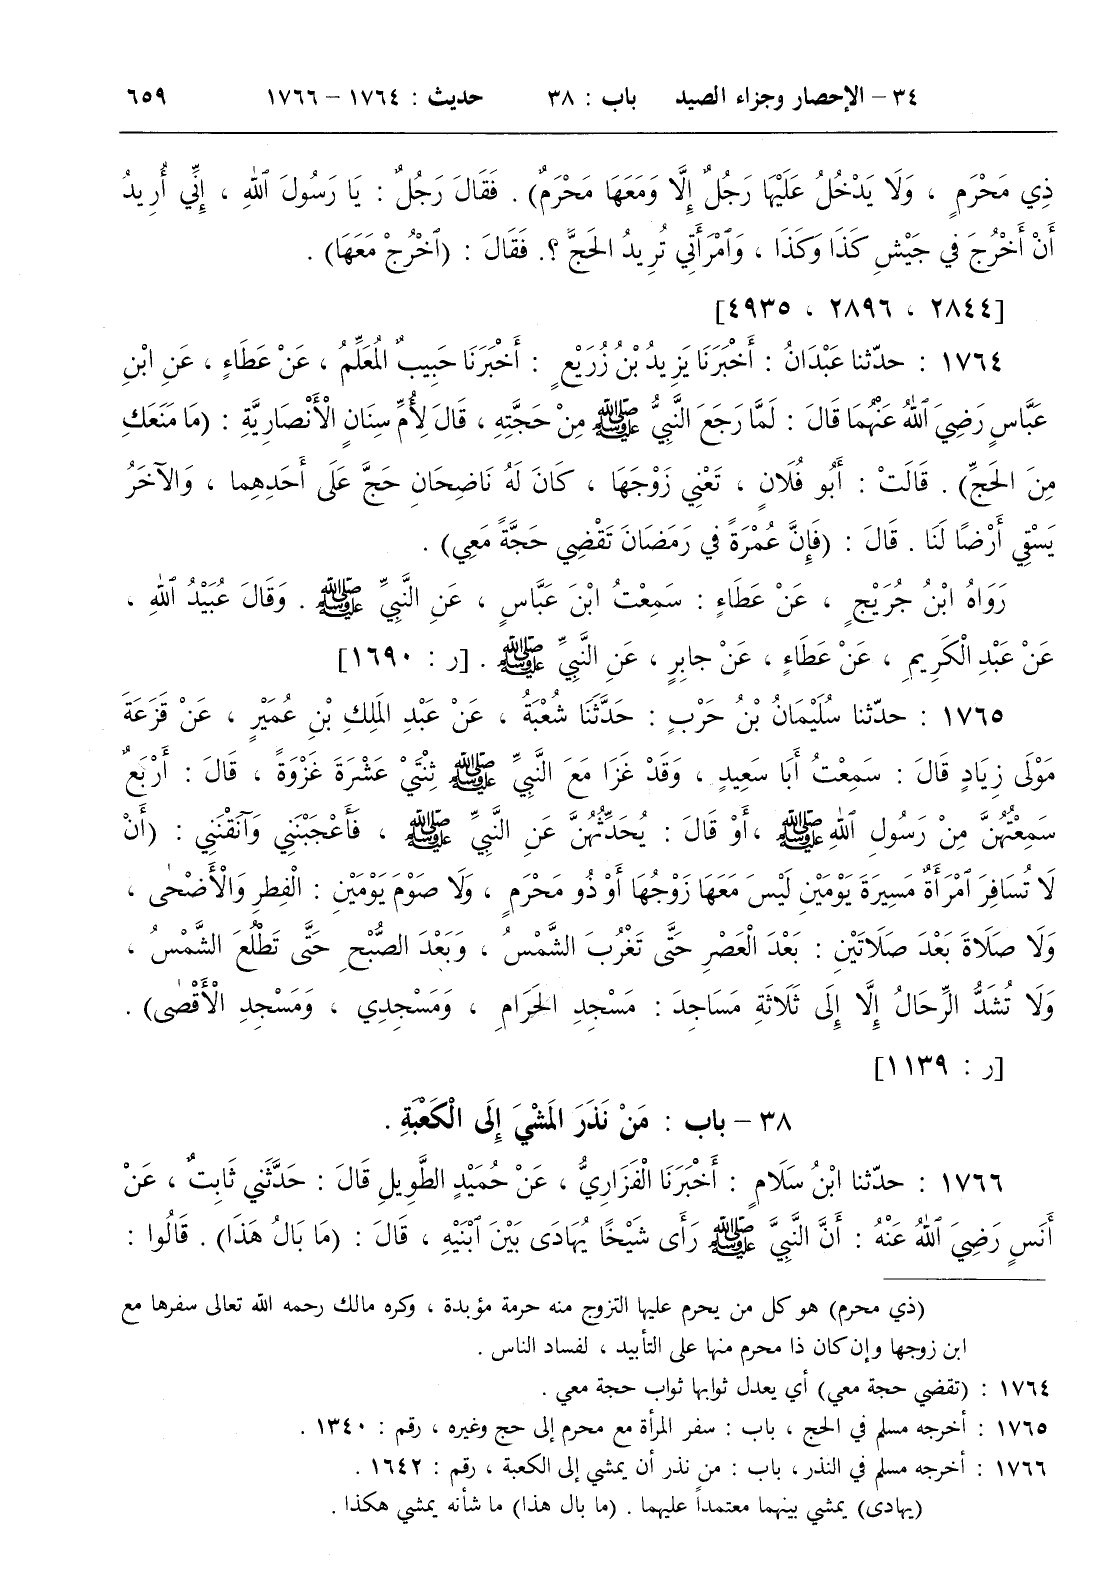 ٣٤ – الإحصار وجزاء الصيد باب : ٣٨ حديث : ١٧٦٤ – ١٧٦٦ ٦٥٩
ذِي مَحْرَمٍ ، وَلَا يَدْخُلُ عَلَيْهَا رَجُلٌ إِلَّا وَمَعَهَا مَحْرَمٌ) . فَقَالَ رَجُلٌ : يَا رَسُولَ ٱللهِ ، إِنِّي أُرِيدُ
أَنْ أَخْرُجَ في جَيْشِ كَذَا وَكَذَا ، وَٱمْرَأَتِي تُرِيدُ الحَجَّ ؟. فَقَالَ : (ٱخْرُجْ مَعَهَا) .
[٢٨٤٤ ، ٢٨٩٦ ، ٤٩٣٥]
١٧٦٤ : حدّثنا عَبْدَانُ : أَخْبَرَنَا يَزِيدُ بْنُ زُرَيْعٍ : أَخْبَرَنَا حَبِيبٌ المُعَلِّمُ ، عَنْ عَطَاءٍ ، عَنِ ابْنِ
عَبَّاسٍ رَضِيَ ٱللهُ عَنْهُمَا قَالَ : لَمَّا رَجَعَ النَّبِيُّ ﷺ مِنْ حَجَّتِهِ ، قَالَ لِأُمِّ سِنَانٍ الْأَنْصَارِيَّةِ : (مَا مَنَعَكِ
مِنَ الحَجِّ) . قَالَتْ : أَبُو فُلَانٍ ، تَعْنِي زَوْجَهَا ، كَانَ لَهُ نَاضِحَانِ حَجَّ عَلَى أَحَدِهِما ، وَالآخَرُ
يَسْقِي أَرْضًا لَنَا . قَالَ : (فَإِنَّ عُمْرَةً في رَمَضَانَ تَقْضِي حَجَّةً مَعِي) .
رَوَاهُ ابْنُ جُرَيْجٍ ، عَنْ عَطَاءٍ : سَمِعْتُ ابْنَ عَبَّاسٍ ، عَنِ النَّبِيِّ ﷺ . وَقَالَ عُبَيْدُ ٱللهِ ،
عَنْ عَبْدِ الْكَرِيمِ ، عَنْ عَطَاءٍ ، عَنْ جابِرٍ ، عَنِ النَّبِيِّ ﷺ . [ر : ١٦٩٠]
١٧٦٥ : حدّثنا سُلَيْمَانُ بْنُ حَرْبٍ : حَدَّثَنَا شُعْبَةُ ، عَنْ عَبْدِ المَلِكِ بْنِ عُمَيْرٍ ، عَنْ قَزَعَةَ
مَوْلَى زِيَادٍ قَالَ : سَمِعْتُ أَبَا سَعِيدٍ ، وَقَدْ غَزَا مَعَ النَّبِيِّ ﷺ ثِنْتَيْ عَشْرَةَ غَزْوَةً ، قَالَ : أَرْبَعٌ
سَمِعْتُهُنَّ مِنْ رَسُولِ ٱللهِ ﷺ ،أَوْ قَالَ : يُحَدِّثُهُنَّ عَنِ النَّبِيِّ ﷺ ، فَأَعْجَبْنَنِي وَآنَقْنَنِي : (أَنْ
لَا تُسَافِرَ ٱمْرَأَةٌ مَسِيرَةَ يَوْمَيْنِ لَيْسَ مَعَهَا زَوْجُهَا أَوْ ذُو مَحْرَمٍ ، وَلَا صَوْمَ يَوْمَيْنِ : الْفِطرِ وَالْأَضْحٰى ،
وَلَا صَلَاةَ بَعْدَ صَلَاتَيْنِ : بَعْدَ الْعَصْرِ حَتَّى تَغْرُبَ الشَّمْسُ ، وَبَعْدَ الصُّبْحِ حَتَّى تَطْلُعَ الشَّمْسُ ،
وَلَا تُشَدُّ الرِّحَالُ إِلَّا إِلَى ثَلَاثَةِ مَسَاجِدَ : مَسْجِدِ الحَرَامِ ، وَمَسْجِدِي ، وَمَسْجِدِ الْأَقْصٰى) .
[ر : ١١٣٩]
٣٨ – باب : مَنْ نَذَرَ المَشْيَ إِلَى الْكَعْبَةِ .
١٧٦٦ : حدّثنا ابْنُ سَلَامٍ : أَخْبَرَنَا الْفَزَارِيُّ ، عَنْ حُمَيْدٍ الطَّوِيلِ قَالَ : حَدَّثَنِي ثَابِتٌ ، عَنْ
أَنَسٍ رَضِيَ ٱللهُ عَنْهُ : أَنَّ النَّبِيَّ ﷺ رَأَى شَيْخًا يُهَادَى بَيْنَ ٱبْنَيْهِ ، قَالَ : (مَا بَالُ هَذَا) . قَالُوا :
(ذي محرم) هو كل من يحرم عليها التزوج منه حرمة مؤبدة ، وكره مالك رحمه الله تعالى سفرها مع
ابن زوجها وإن كان ذا محرم منها على التأبيد ، لفساد الناس .
١٧٦٤ : (تقضي حجة معي) أي يعدل ثوابها ثواب حجة معي .
١٧٦٥ : أخرجه مسلم في الحج ، باب : سفر المرأة مع محرم إلى حج وغيره ، رقم : ١٣٤٠ .
١٧٦٦ : أخرجه مسلم في النذر ، باب : من نذر أن يمشي إلى الكعبة ، رقم : ١٦٤٢ .
(يهادى) يمشي بينهما معتمداً عليهما . (ما بال هذا) ما شأنه يمشي هكذا .